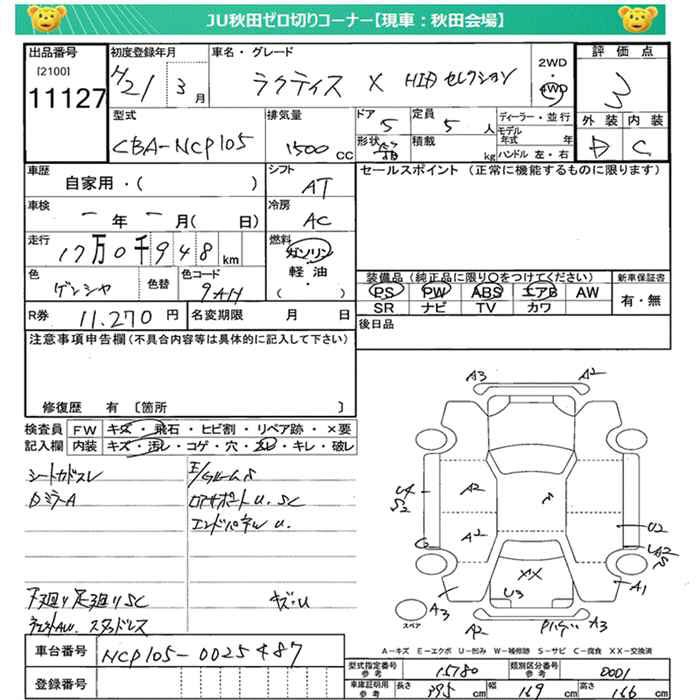 JU秋田ゼロ切りコーナー【現車：秋田会場】
出品番号 [2100] 11127
初度登録年月 H21年 3月
車名・グレード ラクティス X HIDセレクション
2WD・4WD
評価点 3
外装 D 内装 C
型式 CBA-NCP105
排気量 1500 cc
ドア 5
形状
定員 5人
積載 kg
ディーラー・並行
モデル年式 年
ハンドル 左・右
車歴 自家用・( )
シフト AT
セールスポイント (正常に機能するものに限ります)
車検 ー年ー月( 日)
冷房 AC
走行 17万0千948km
燃料 ガソリン 軽油・( )
色 ゲンシャ 色替 色コード 9AH
装備品 (純正品に限り○をつけてください)
PS PW ABS エアB AW
SR ナビ TV カワ
新車保証書 有・無
R券 11,270円 名変期限 月 日
後日品
注意事項申告欄(不具合内容等は具体的に記入して下さい)
修復歴 有 〔箇所 〕
検査員記入欄
FW キズ・飛石・ヒビ割・リペア跡・×要
内装 キズ・汚レ・コゲ・穴・スレ・キレ・破レ
シートカドスレ
Dミラー A
ロアサポートU. SC
エンドパネル U.
下廻り足廻りSC
ヤズ・U
スタッドレス
A3 A2
U4
S2
A2
A2
U2
UA2
S
A1
XX
U3
A3
A2
A3
スペア
A−キズ E−エクボ U−凹み W−補修跡 S−サビ C−腐食 XX−交換済
車台番号 NCP105-0025487
登録番号
型式指定番号 参考 15780
類別区分番号 参考 0001
車庫証明用 参考 長さ 395 cm 幅 169 cm 高さ 166 cm